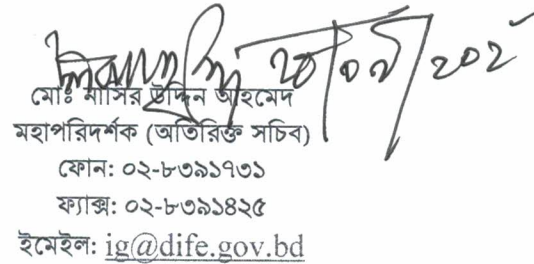 মোঃ নাসির উদ্দিন আহমেদ
মহাপরিদর্শক (অতিরিক্ত সচিব)
ফোন: ০২-৮৩৯১৭৩১
ফ্যাক্স: ০২-৮৩৯১৪২৫
ইমেইল: ig@dife.gov.bd